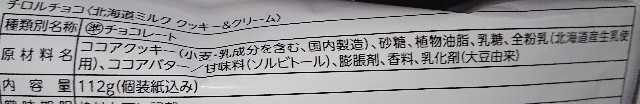 チロルチョコ〈北海道ミルク クッキー&クリーム〉
種類別名称 ㊟チョコレート
原材料名 ココアクッキー(小麦・乳成分を含む、国内製造)、砂糖、植物油脂、乳糖、全粉乳(北海道産生乳使
用)、ココアバター/甘味料(ソルビトール)、膨脹剤、香料、乳化剤(大豆由来)
内容量 112g(個装紙込み)